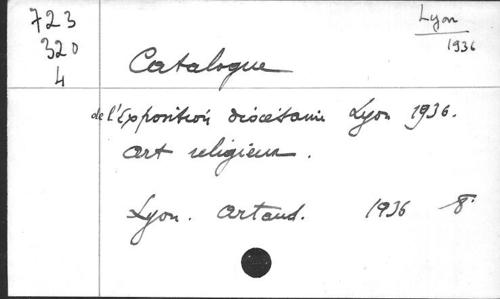 723
320
4
Lyon
1936
Catalogue
de l'Exposition diocésaine Lyon 1936.
Art religieux.
Lyon. Artaud. 1936 8°